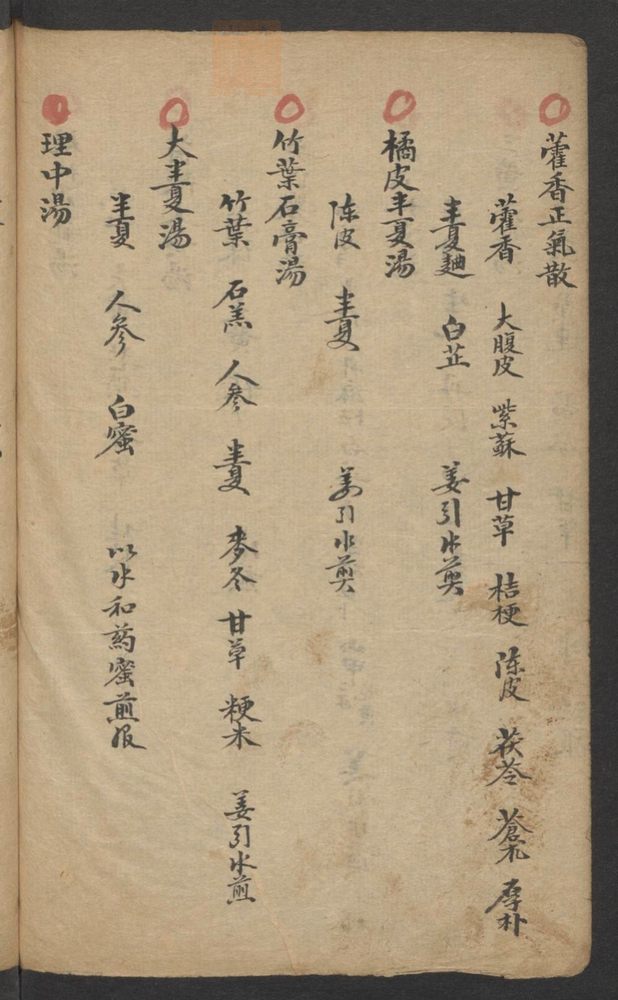 藿香正氣散
藿香 大腹皮 紫蘇 甘草 桔梗 陈皮 茯苓 蒼朮 厚朴
半夏麯 白芷 姜引水煎
橘皮半夏湯
陈皮 半夏 姜引水煎
竹葉石膏湯
竹葉 石羔 人参 半夏 麥冬 甘草 粳米 姜引水煎
大半夏湯
半夏 人參 白蜜 以水和葯蜜煎服
理中湯